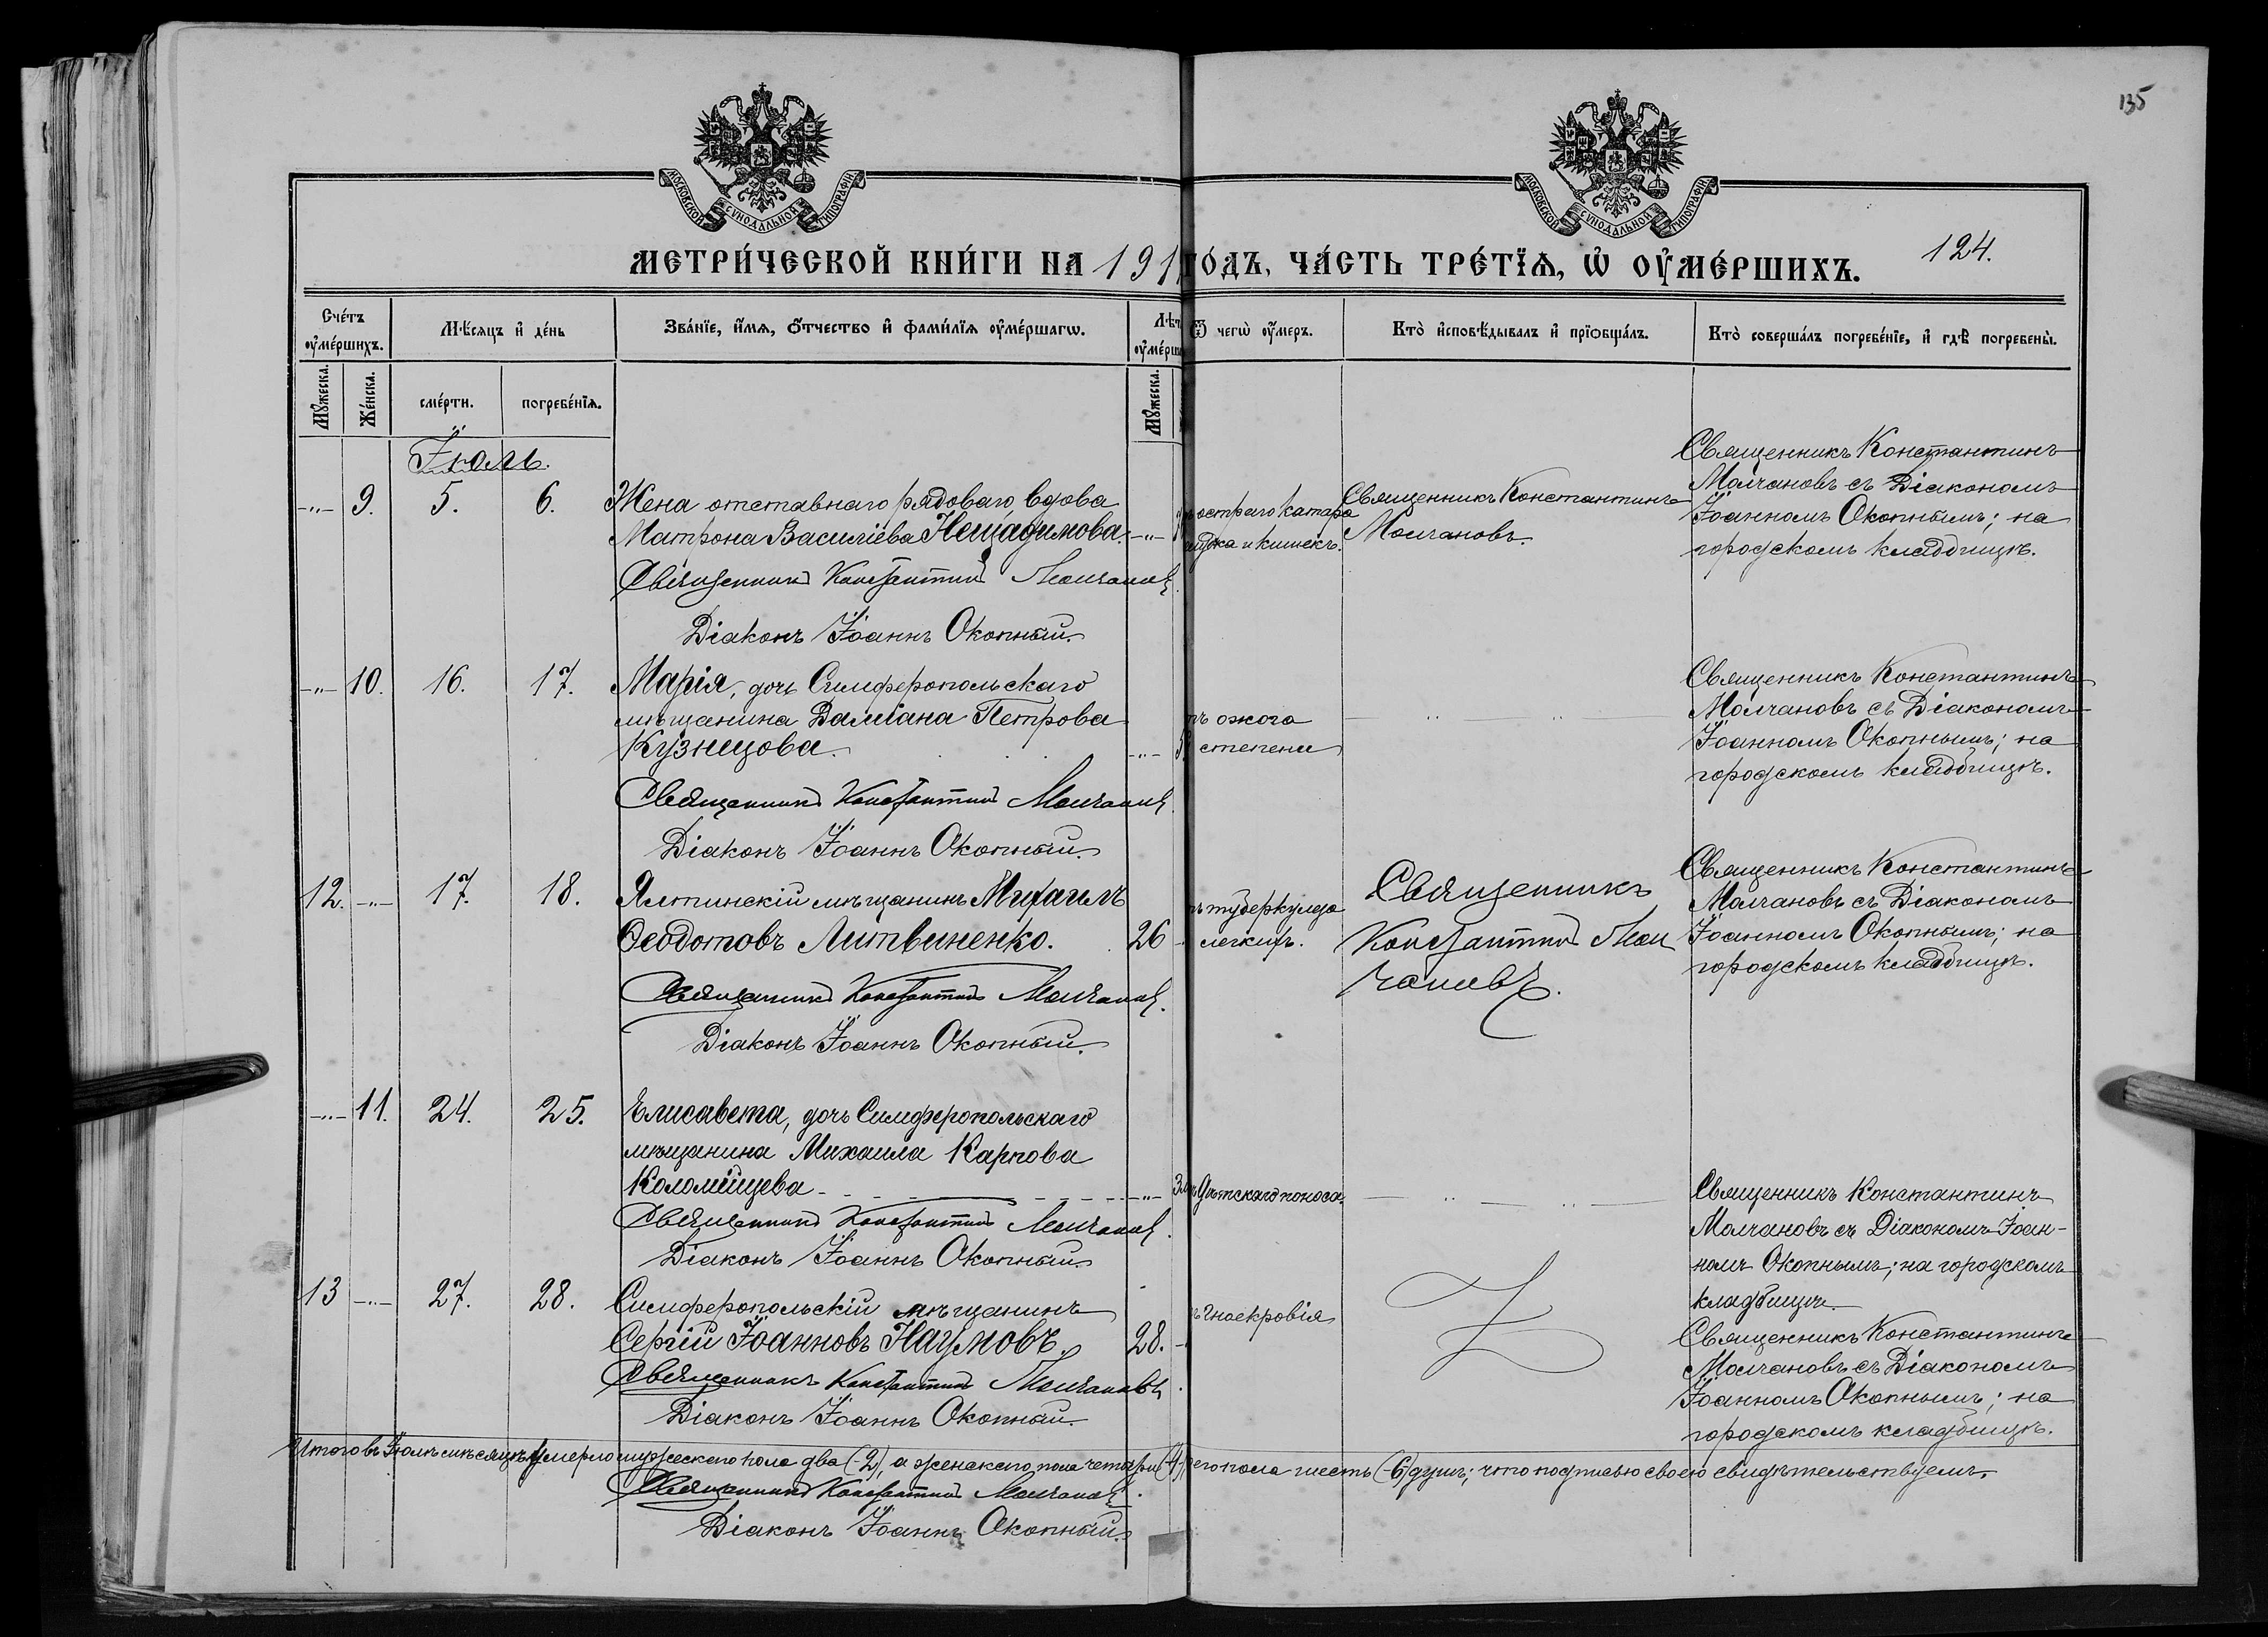 135
МОСКОВСКОЙ СѴНОДАЛЬНОЙ ТИПОГРАФІИ
МОСКОВСКОЙ СѴНОДАЛЬНОЙ ТИПОГРАФІИ
МЕТРИ́ЧЕСКОЙ КНИ́ГИ НА 191
ГО́ДЪ, ЧА́СТЬ ТРЕ́ТЇѦ, Ѡ҆ ОУ҆МЕ́РШИХЪ.
124.
Сче́тъ оу҆ме́ршихъ.
Мѣ́сяцъ и҆ де́нь
Зва́нїе, и҆́мѧ, ѻ҆́тчество и҆ фами́лїѧ оу҆ме́ршагѡ.
Ѿ чегѡ̀ оу҆́меръ.
Кто̀ и҆сповѣ́дывалъ и҆ прїобща́лъ.
Кто̀ соверша́лъ погребе́нїе, и҆ гдѣ̀ погребены̀.
Мꙋ́жеска.
Же́нска.
сме́рти.
погребе́нїѧ.
Мꙋ́жеска.
Іюль.
-"- 9. 5. 6. Жена отставнаго рядоваго, вдова
Матрона Василіева Нещадимова. -"-
Священникъ Константинъ Молчановъ.
Діаконъ Іоаннъ Окопный.
остраго катара
и кишекъ.
Священникъ Константинъ
Молчановъ.
Священникъ Константинъ
Молчановъ съ Діакономъ
Іоанномъ Окопнымъ; на
городскомъ кладбищѣ.
-"- 10. 16. 17. Марія, дочь Симферопольскаго
мѣщанина Даміана Петрова
Кузнецова. -"-
Священникъ Константинъ Молчановъ.
Діаконъ Іоаннъ Окопный.
ожога
степени
Священникъ Константинъ
Молчановъ съ Діакономъ
Іоанномъ Окопнымъ; на
городскомъ кладбищѣ.
12. -"- 17. 18. Ялтинскій мѣщанинъ Михаилъ
Ѳеодотовъ Литвиненко. 26
Священникъ Константинъ Молчановъ.
Діаконъ Іоаннъ Окопный.
туберкулеза
легкихъ.
Священникъ
Константинъ Мол
чановъ.
Священникъ Константинъ
Молчановъ съ Діакономъ
Іоанномъ Окопнымъ; на
городскомъ кладбищѣ.
-"- 11. 24. 25. Елисавета, дочь Симферопольскаго
мѣщанина Михаила Карпова
Коломійцева -"-
Священникъ Константинъ Молчановъ.
Діаконъ Іоаннъ Окопный
дѣтскаго поноса.
Священникъ Константинъ
Молчановъ съ Діакономъ Іоан-
номъ Окопнымъ; на городскомъ
кладбищѣ.
13 -"- 27. 28. Симферопольскій мѣщанинъ
Сергій Іоанновъ Наумовъ. 28.
Священникъ Константинъ Молчановъ.
Діаконъ Іоаннъ Окопный.
гноекровія
Священникъ Константинъ
Молчановъ съ Діакономъ
Іоанномъ Окопнымъ; на
городскомъ кладбищѣ.
Итого въ Іюлѣ мѣсяцѣ умерло мужескаго пола два (-2), а женскаго пола четыре (4)
пола шесть (-6) душъ; что подписью своею свидѣтельствуемъ.
Священникъ Константинъ Молчановъ.
Діаконъ Іоаннъ Окопный.